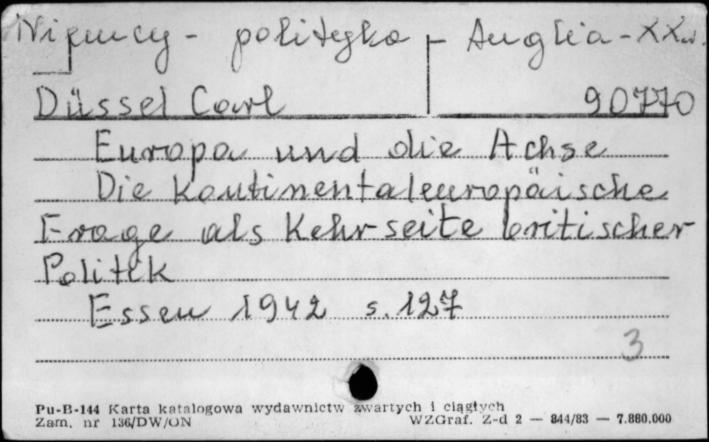 Niemcy - polityka - Anglia - XXw.
Düssel Carl 90770
Europa und die Achse
Die kontinentaleuropäische
Frage als Kehrseite britischer
Politik
Essen 1942 s. 127
3
Pu-B-144 Karta katalogowa wydawnictw zwartych i ciągłych
Zam. nr 136/DW/ON WZGraf. Z-d 2 — 844/83 — 7.880.000